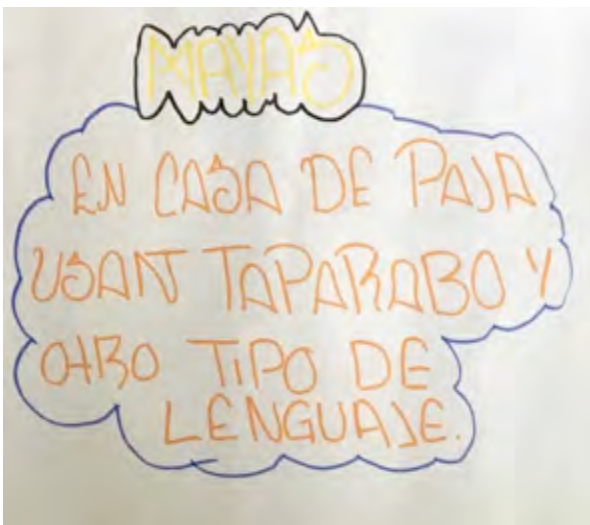 MAYAS
EN CASA DE PAJA
USAN TAPARABO Y
OTRO TIPO DE
LENGUAJE.